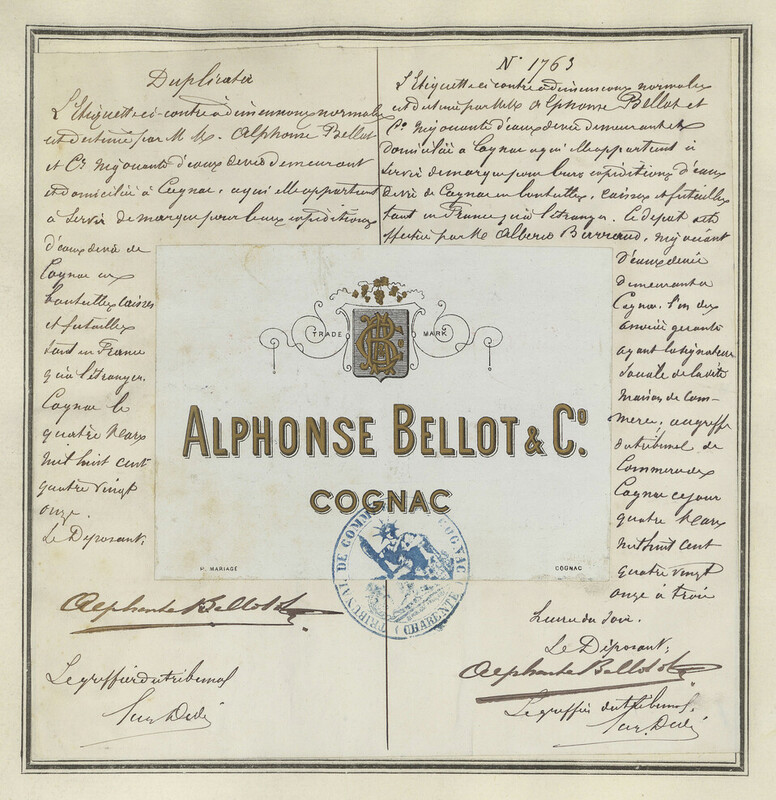 Duplicata
L'Etiquette ci-contre a dimensions normales
est détenue par M M. Alphonse Bellot
et Cie Négociants d'eaux de vie demeurant
et domiciliés à Cognac, à qui elle appartient
à servir de marque pour leurs expéditions
d'eaux de vie de
Cognac en
bouteilles caisses
et futailles
tant en France
qu'à l'étranger.
Cognac le
quatre Mars
mil huit cent
quatre vingt
onze.
Le Déposant,
Alphonse Bellot & Co
Le greffier du tribunal
N° 1763
L'Etiquette ci-contre a dimensions normales
est détenue par MM. Alphonse Bellot et
Cie Négociants d'eaux de vie demeurant et
domiciliés à Cognac à qui elle appartient à
servir de marque pour leurs expéditions d'eaux
de vie de Cognac en bouteilles, caisses et futailles
tant en France qu'à l'étranger. Ce dépôt a été
effectué par M. Alberic, négociant
d'eaux de vie
demeurant à
Cognac. l'un des
associés gérants
ayant la signature
sociale de la dite
Maison de Com-
merce, au greffe
du tribunal de
Commerce de
Cognac ce jour
quatre Mars
mil huit cent
quatre vingt
onze à trois
heures du soir.
Le Déposant,
Alphonse Bellot & Co
Le greffier du tribunal.
TRADE MARK
ALPHONSE BELLOT & Co.
COGNAC
P. MARIAGE
COGNAC
TRIBUNAL DE COMM COGNAC
(CHARENTE)